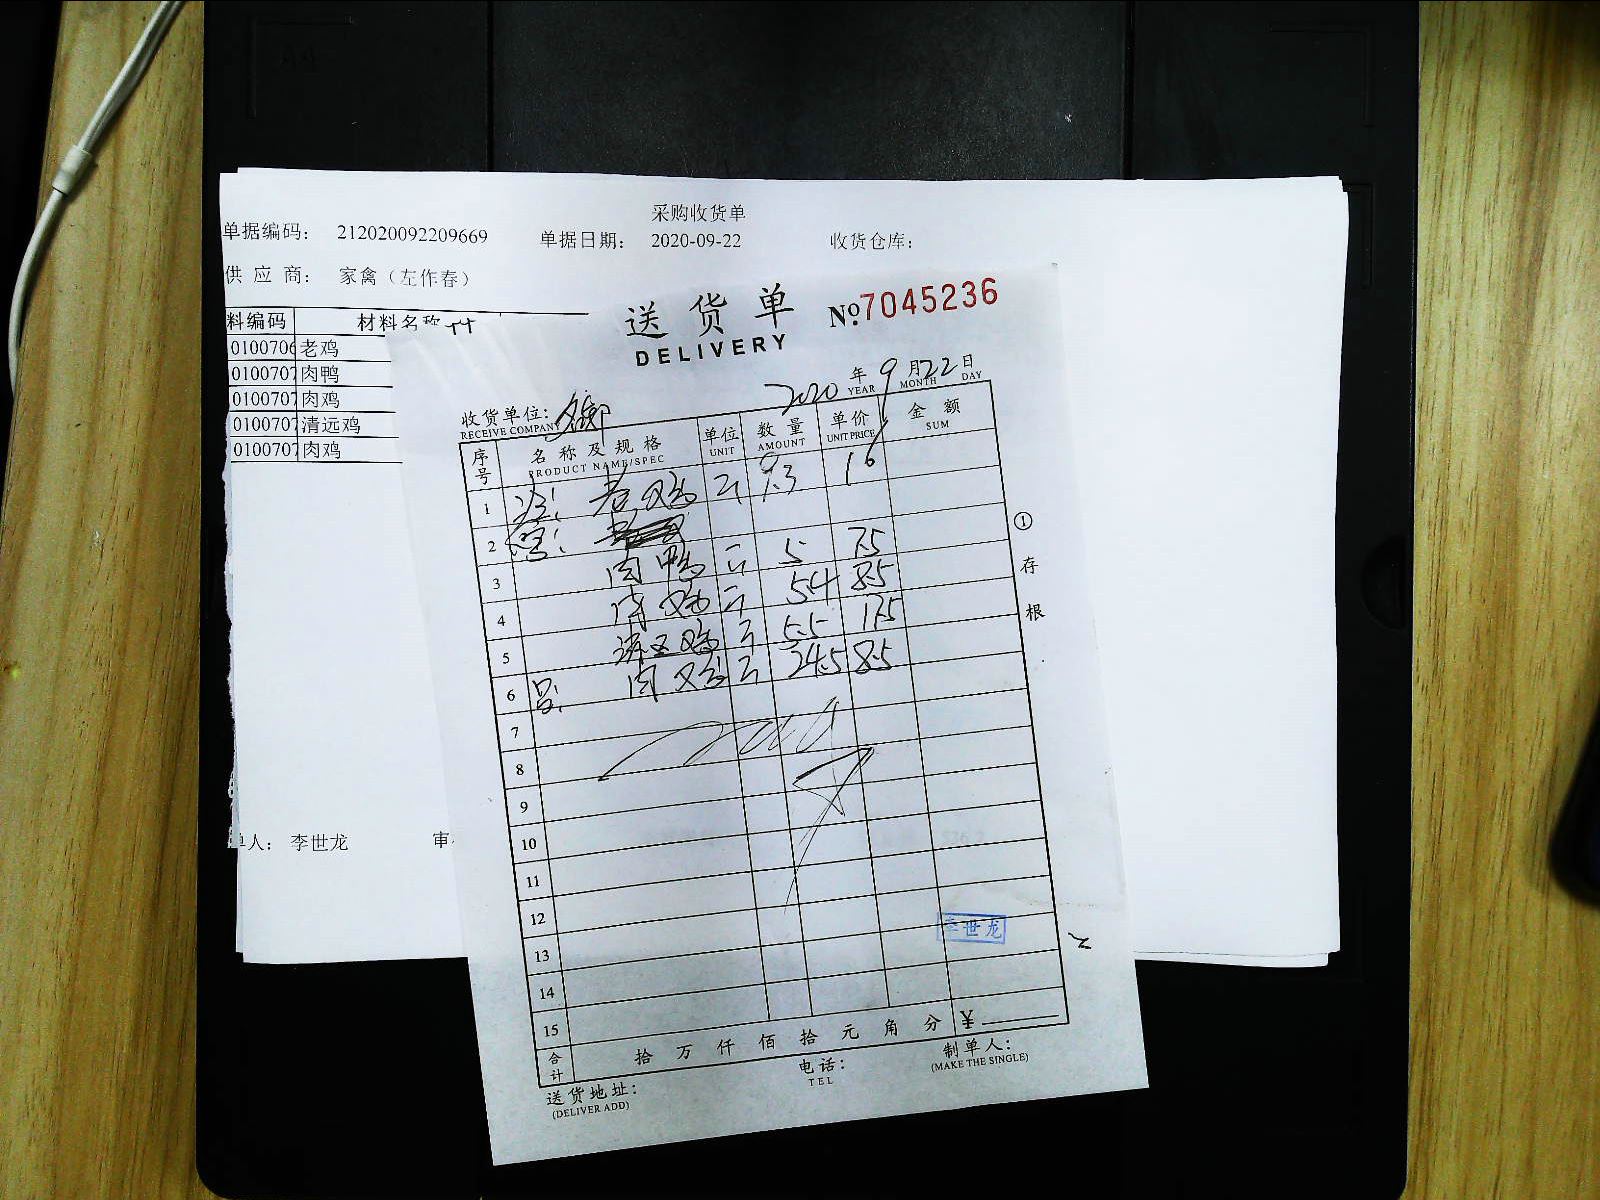 采购收货单
单据编码: 212020092209669 单据日期: 2020-09-22 收货仓库:
供 应 商: 家禽（左作春）
料编码 材料名称
0100706 老鸡
0100707 肉鸭
0100707 肉鸡
0100707 清远鸡
0100707 肉鸡
单人: 李世龙 审
送货单 №7045236
DELIVERY
2020 年 9 月 22 日
YEAR MONTH DAY
收货单位:
RECEIVE COMPANY
序号 名称及规格 单位 数量 单价 金额
PRODUCT NAME/SPEC UNIT AMOUNT UNIT PRICE SUM
1 老鸡 斤 9.3 16
2
3 肉鸭 斤 5 7.5
4 肉鸡 斤 5.4 8.5
5 清远鸡 斤 5.5 17.5
6 肉鸡 斤 24.5 8.5
7
8
9
10
11
12
13
14
15
合计 拾 万 仟 佰 拾 元 角 分 ¥
① 存根
李世龙
送货地址: 电话: 制单人:
(DELIVER ADD) TEL (MAKE THE SINGLE)